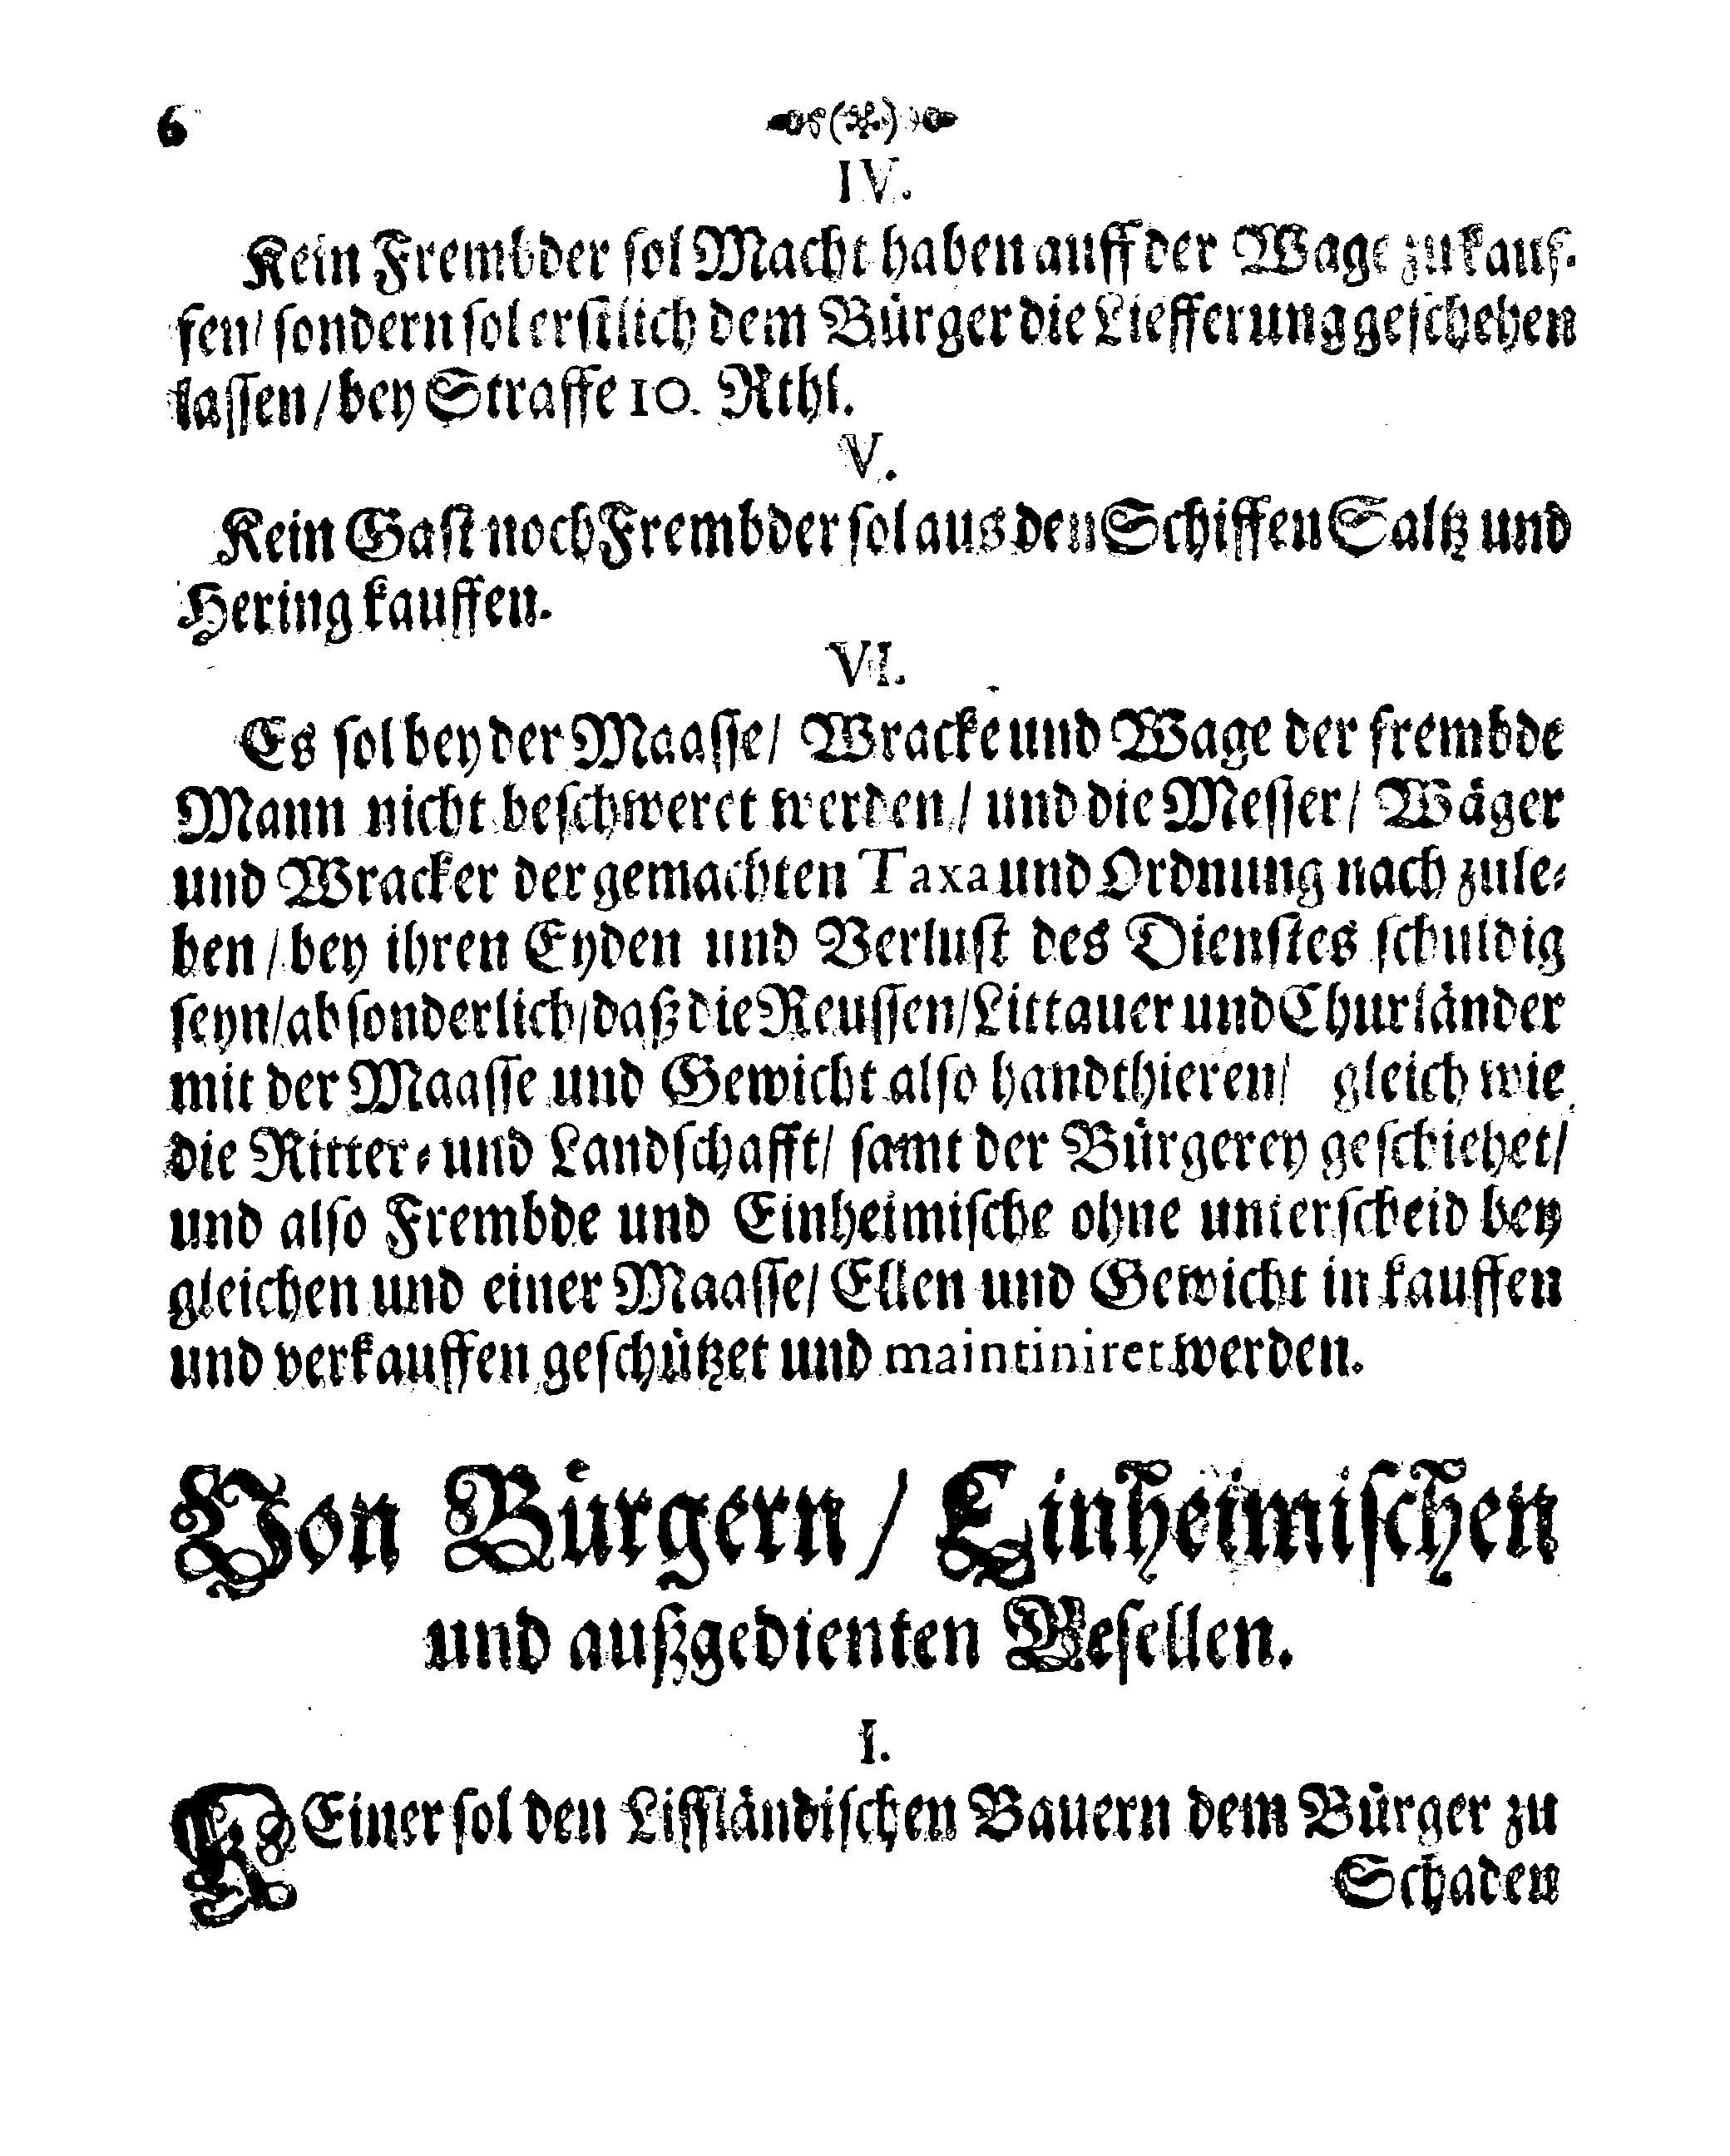 6
IV.
Kein Frembder sol Macht haben auff der Wage zu kauf-
fen/ sondern sol erstlich dem Bürger die Liefferung geschehen
lassen / bey Straffe 10. Rthl.
V.
Kein Gast noch Frembder sol aus den Schiffen Saltz und
Hering kauffen.
VI.
Es sol bey der Maasse/ Wracke und Wage der frembde
Mann nicht beschweret werden / und die Messer / Wäger
und Wracker der gemachten Taxa und Ordnung nach zule-
ben / bey ihren Eyden und Verlust des Dienstes schuldig
seyn/ absonderlich/ daß die Reussen/ Littauer und Churländer
mit der Maasse und Gewicht also handthieren/ gleich wie
die Ritter- und Landschafft/ samt der Bürgerey geschiehet/
und also Frembde und Einheimische ohne unterscheid bey
gleichen und einer Maasse/ Ellen und Gewicht in kauffen
und verkauffen geschützet und maintiniret werden.
Von Bürgern / Einheimischen
und außgedienten Gesellen.
I.
KEiner sol den Liffländischen Bauern dem Bürger zu
Schaden